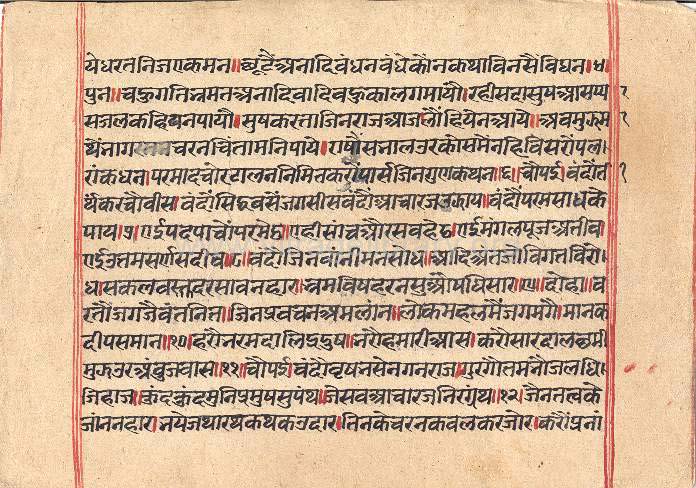 येधरतनिजएकमन॥छूटैअनादिबंधनबंधेकौनकथाविनसैविघन।५
पुन॥चहुगतिभ्रमतअनादिवादिबहुकालगमायौ।रहीसदासुषआसप्या
सजलकहिथनपायौ।सुषकरताजिनराजआजलौंहियेनआये।अबमुझम
थेनागरचरनचिंतामनिपाये।राषौंसनालउरकोसमैंनहिविसरौंपल
रांकधन।परमादचोरटालननिमितकरौंपार्सजिनगुणकथन।६।चौपई।वंदौंर्ती
र्थंकरचौवीस।वंदौंसिद्धवसेंजगसीसवंदौंआचारजउवझाय।वंदौंपरमसाधके
पाय।७।एईपदपाचौंपरमेष्ठ।एहीसांचऔरसवहेठ।एईमंगलपूजअतीव।
एईउत्तमसर्णसदीव।८।वंदौजिनवानीमनसोध।आदिअंतजोविगतविरो
धासकलवस्तुदरसावनहार।भ्रमविषहरनसुऔषधिसार।९।दोहा॥व
रतौंजगजैवंतनित।जिनप्रवचनअमलांन।लोकमहलमैंजगमगैमानक
दीपसमान।१०।हरौनरमदालिप्रदुष।नरौहमारीआस।करौसारदालछमी
मुझउरअंबुजवास।११।चौपई।वंदौवृषनसेनगनराज।गुरगौतमनौजलधि।
जिहाज।कुंदकुंदमुनिप्रमुषसुपंथ।जेसवआचारजनिरग्रंथ।१२।जैनतत्वके
जांननहार।नयेजथारथकथकउदार।तिनकेचरनकवलकरजोर।करौंप्रनां